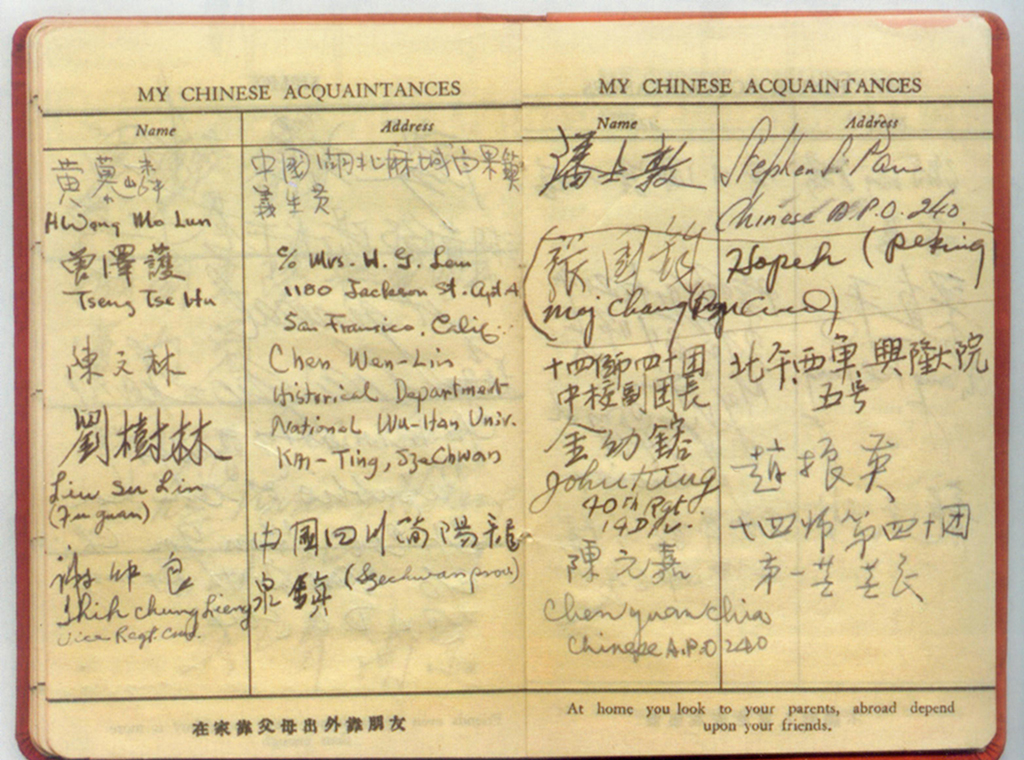 MY CHINESE ACQUAINTANCES
Name Address
黄
中國湖北麻城白果鎮
義生
Hwang Mo Lun
曾澤護
Tseng Tse Hu
c/o Mrs. W. G. Lew
1180 Jackson St. Apt A
San Francisco, Calif.
陳文林
Chen Wen-Lin
Historical Department
National Wu-Han Univ.
Kai-Ting, Szechwan
劉樹林
Liu Su Lin
(Fu guan)
中國四川簡陽龍
泉鎮 (Szechwan prov)
Vice Regt. Cmd.
在家靠父母出外靠朋友
MY CHINESE ACQUAINTANCES
Name Address
潘士敦
Stephen S. Pan
Chinese A.P.O. 240
張國
Hopeh (Peking)
Maj Chang (Regt Cmd)
十四師四十团
中校副团長
北平西單興隆大院
五号
金幼鎔
John King
40th Regt.
14 Div.
趙振英
十四师第四十团
第一营营长
陳元嘉
Chen yuan chia
Chinese A.P.O 240
At home you look to your parents, abroad depend
upon your friends.